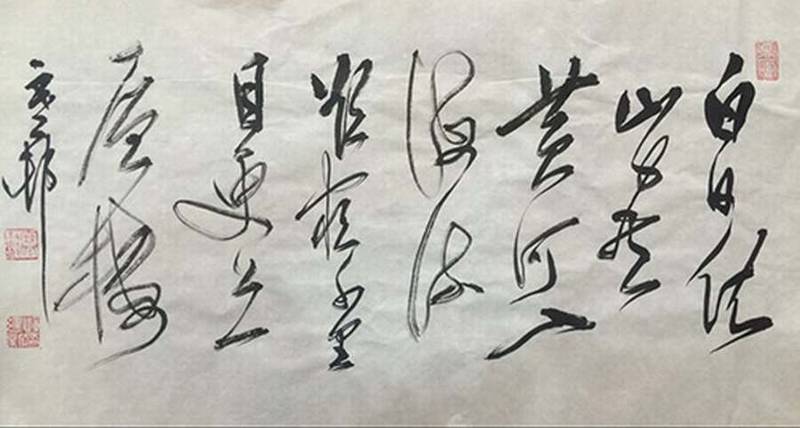 白日依
山盡
黄河入
海流
欲窮千里
目更上一
層樓